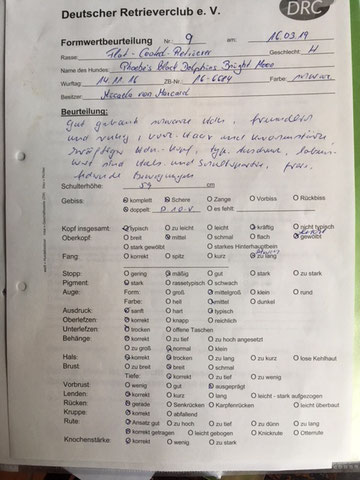 Deutscher Retrieverclub e. V.
DRC
Formwertbeurteilung Nr. 9 am: 16.03.19
Rasse: Flat-Coated-Retriever Geschlecht: H
Name des Hundes: Phoebe's Black Dolphins Bright Moon
Wurftag: 14.11.16 ZB-Nr.: Farbe: schwarz
Besitzer: Micaela von Marcard
Beurteilung:
gut gebaute schwarze Hdn., freundlich
und ruhig, Haar und
kräftiger Hdn.-Kopf, typ. Ausdruck,
sind Hals- und Schulterpartie, frei
Bewegungen
Schulterhöhe: 59 cm
Gebiss: komplett Schere Zange Vorbiss Rückbiss
doppelt: es fehlt
Kopf insgesamt: typisch zu leicht leicht kräftig nicht typisch
Oberkopf: breit mittel schmal flach gewölbt
stark gewölbt starkes Hinterhauptbein
Fang: korrekt spitz kurz zu lang
Stopp: gering mäßig gut stark zu stark
Pigment: stark rassetypisch schwach
Auge: Form: groß mittelgroß klein rund
Farbe: hell mittel dunkel
Ausdruck: sanft hart typisch
Oberlefzen: korrekt knapp reichlich
Unterlefzen: trocken offene Taschen
Behänge: korrekt zu tief zu hoch angesetzt
zu groß normal klein
Hals: korrekt trocken zu lang zu kurz lose Kehlhaut
Brust: zu breit breit schmal
Tiefe: korrekt zu tief zu wenig
Vorbrust: wenig gut ausgeprägt
Lenden: korrekt kurz lang leicht - stark aufgezogen
Rücken: gerade Senkrücken Karpfenrücken leicht überbaut
Kruppe: korrekt abfallend
Rute: Ansatz gut zu hoch zu tief zu dünn zu lang
korrekt getragen leicht gebogen Knickrute Otterrute
Knochenstärke: korrekt wenig zu stark